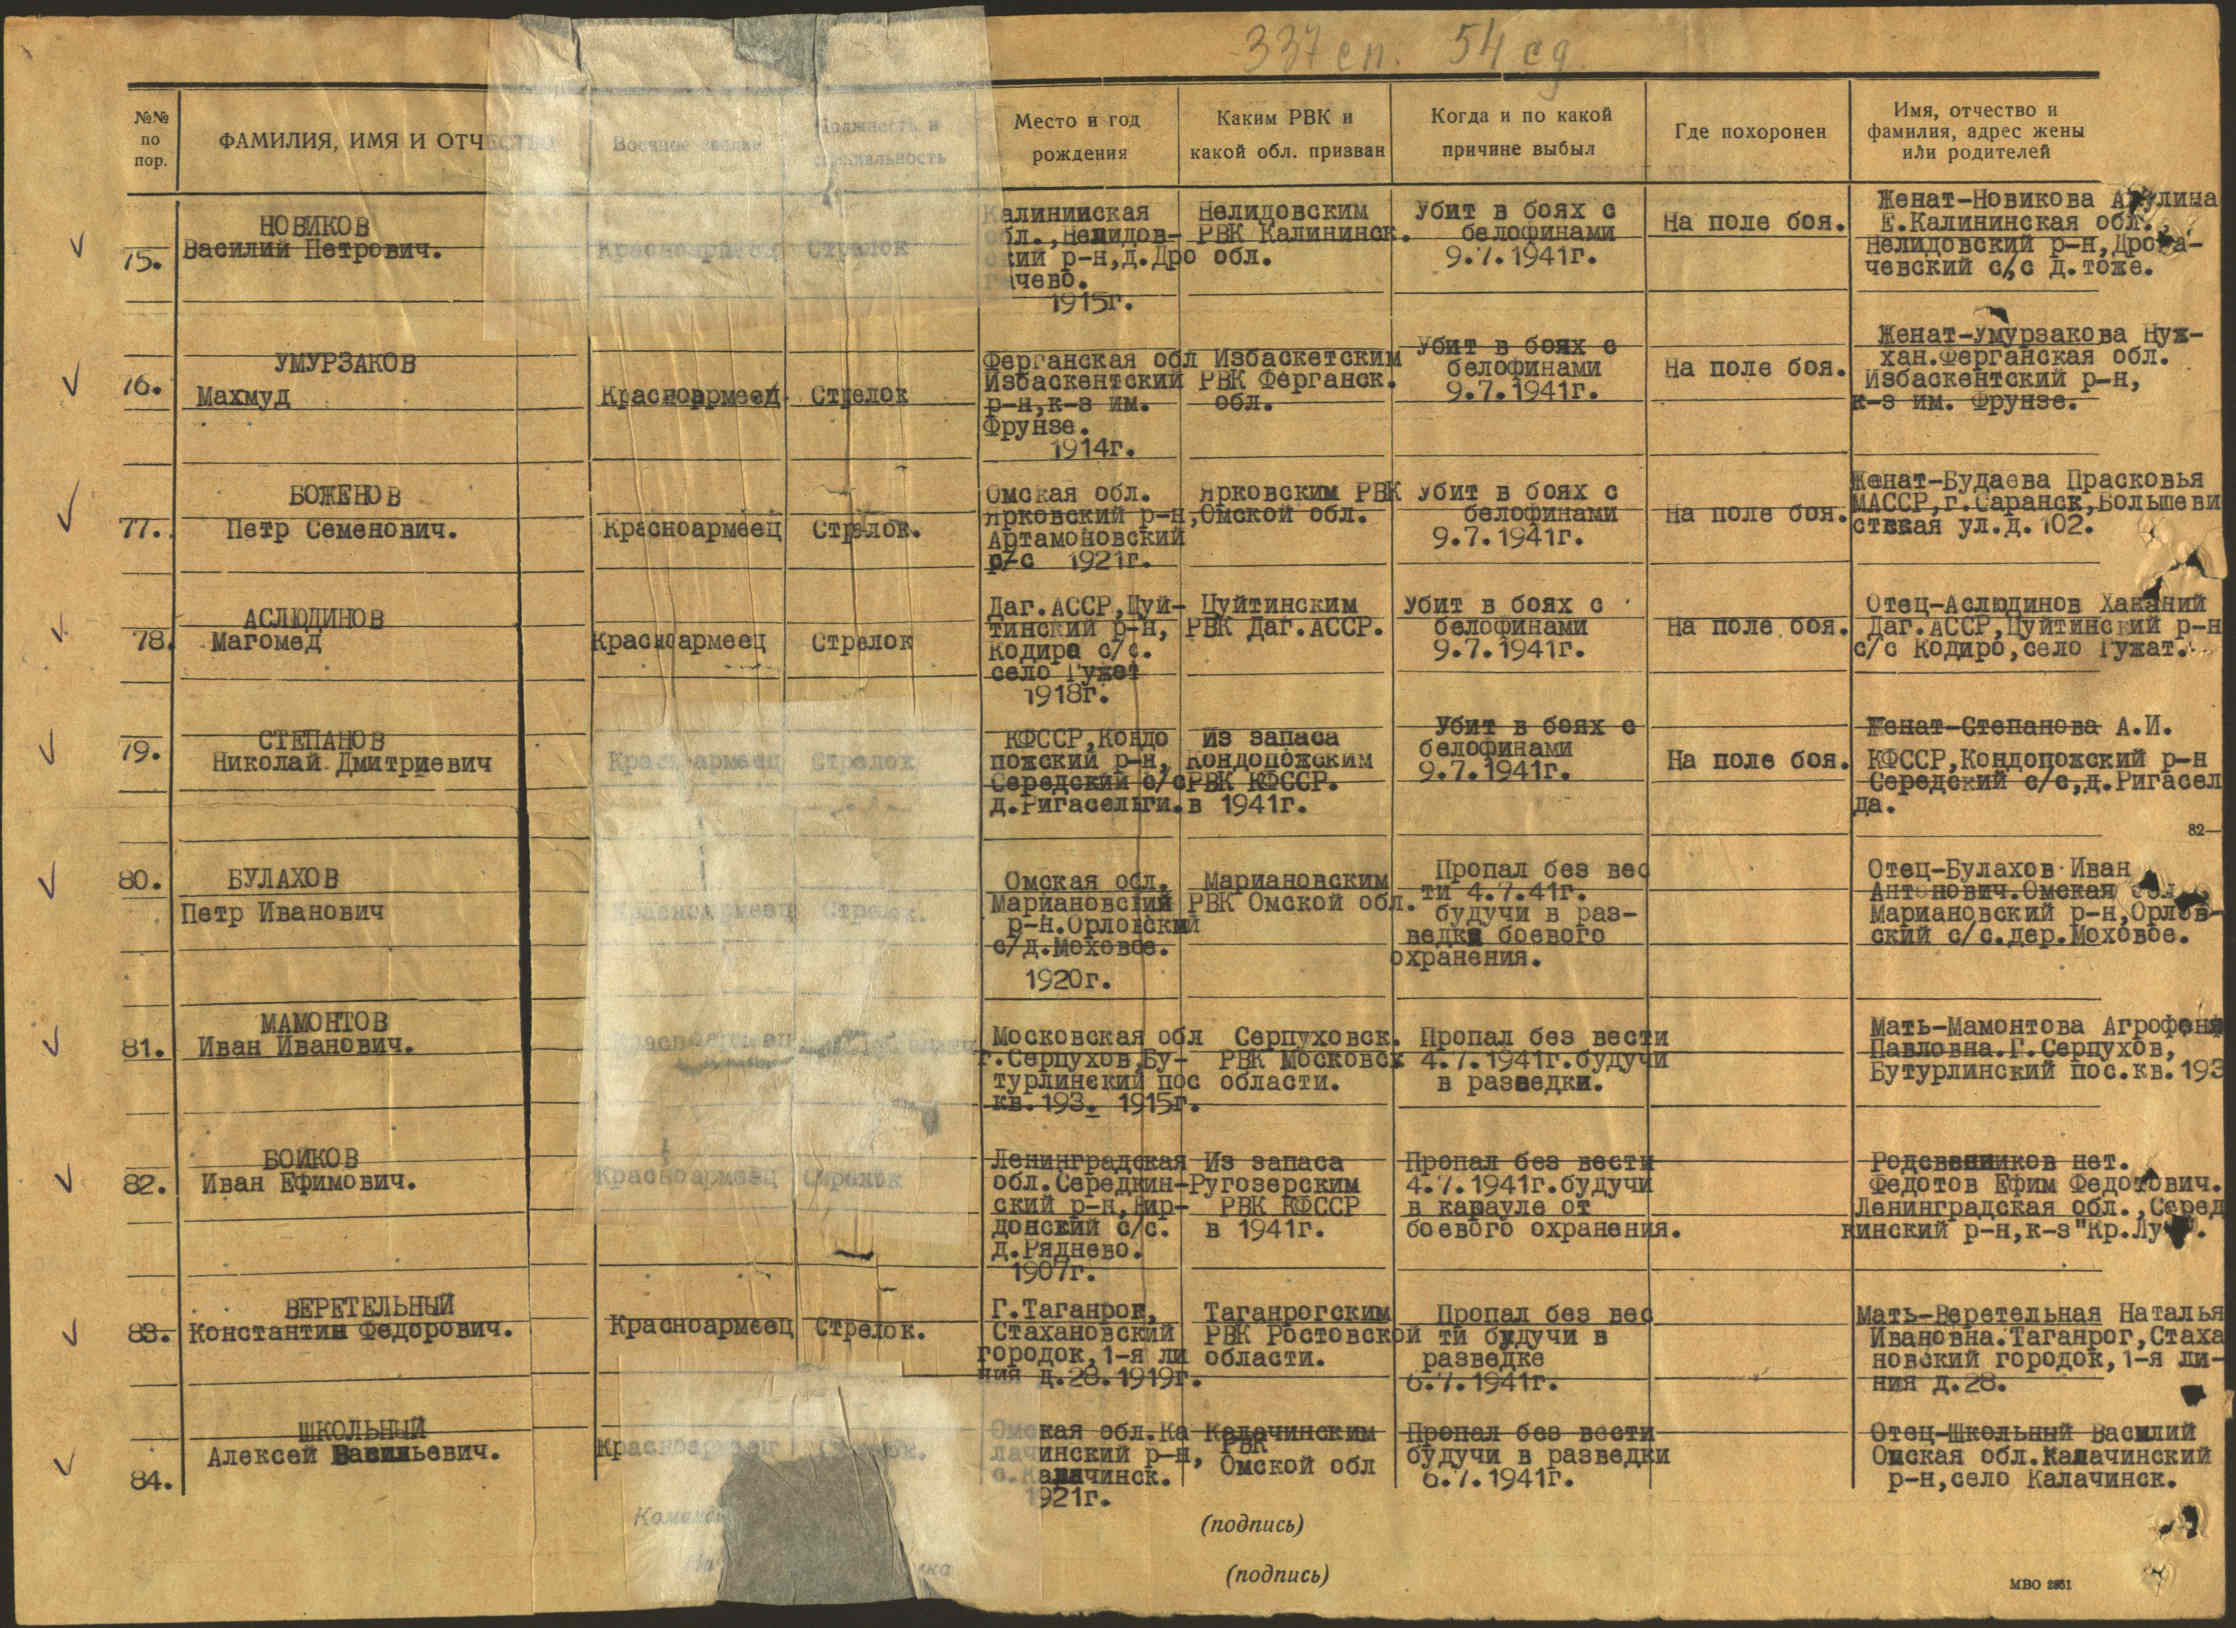 337 сп. 54 сд.
№№ по пор.
ФАМИЛИЯ, ИМЯ И ОТЧЕСТВО
Военное звание
Должность и специальность
Место и год рождения
Каким РВК и какой обл. призван
Когда и по какой причине выбыл
Где похоронен
Имя, отчество и фамилия, адрес жены или родителей
75.
НОВИКОВ
Василий Петрович.
Красноармеец
Стрелок
Калининская
обл., Нелидов-
ский р-н,д.Дро
гачево.
1915г.
Нелидовским
РВК Калининск.
обл.
Убит в боях с
белофинами
9.7.1941г.
На поле боя.
Женат-Новикова
Е.Калининская обл.
Нелидовский р-н,
чевский с/с д.тоже.
76.
УМУРЗАКОВ
Махмуд
Красноармеец
Стрелок
Ферганская обл
Избаскентский
р-н,к-з им.
Фрунзе.
1914г.
Избаскетским
РВК Ферганск.
обл.
Убит в боях с
белофинами
9.7.1941г.
На поле боя.
Женат-Умурзакова Нуж-
хан.Ферганская обл.
Избаскентский р-н,
к-з им. Фрунзе.
77.
БОЖЕНОВ
Петр Семенович.
Красноармеец
Стрелок.
Омская обл.
Ярковский р-н,
Артамоновский
с/с 1921г.
Ярковским РВК
Омской обл.
Убит в боях с
белофинами
9.7.1941г.
На поле боя.
Женат-Будаева Прасковья
МАССР,г.Саранск,Большеви
стская ул.д.102.
78.
АСЛЮДИНОВ
Магомед
Красноармеец
Стрелок
Даг.АССР,Цуй-
тинский р-н,
Кодиро с/с.
село Гужат
1918г.
Цуйтинским
РВК Даг.АССР.
Убит в боях с
белофинами
9.7.1941г.
На поле боя.
Отец-Аслюдинов Хананий
Даг.АССР,Цуйтинский р-н
с/с Кодиро,село Гужат.
79.
СТЕПАНОВ
Николай Дмитриевич
Красноармеец
Стрелок
КФССР,Кондо
пожский р-н,
Середский с/с
д.Ригасельги.
из запаса
Кондопожским
РВК КФССР.
в 1941г.
Убит в боях с
белофинами
9.7.1941г.
На поле боя.
Женат-Степанова А.И.
КФССР,Кондопожский р-н
Середский с/с,д.Ригасел
да.
82—
80.
БУЛАХОВ
Петр Иванович
Красноармеец
Стрелок.
Омская обл.
Мариановский
р-н.Орловский
с/д.Моховое.
1920г.
Мариановским
РВК Омской обл.
Пропал без вес
ти 4.7.41г.
будучи в раз-
ведке боевого
охранения.
Отец-Булахов Иван
Антонович.Омская обл.
Мариановский р-н,Орлов-
ский с/с.дер.Моховое.
81.
МАМОНТОВ
Иван Иванович.
Красноармеец
Московская обл
г.Серпухов,Бу-
турлинский пос
кв.193. 1915г.
Серпуховск.
РВК Московск
области.
Пропал без вести
4.7.1941г.будучи
в разведки.
Мать-Мамонтова Агрофеня
Павловна.Г.Серпухов,
Бутурлинский пос.кв.193
82.
БОЙКОВ
Иван Ефимович.
Красноармеец
Стрелок
Ленинградская
обл.Середкин-
ский р-н,
донский с/с.
д.Ряднево.
1907г.
Из запаса
Ругозерским
РВК КФССР
в 1941г.
Пропал без вести
4.7.1941г.будучи
в карауле от
боевого охранения.
Родсвенников нет.
Федотов Ефим Федотович.
Ленинградская обл.,Серед
кинский р-н,к-з"Кр.
83.
ВЕРЕТЕЛЬНЫЙ
Константин Федорович.
Красноармеец
Стрелок.
Г.Таганрог,
Стахановский
городок,1-я ли
ния д.28.1919г.
Таганрогским
РВК Ростовской
области.
Пропал без вес
ти будучи в
разведке
6.7.1941г.
Мать-Веретельная Наталья
Ивановна.Таганрог,Стаха
новский городок,1-я ли-
ния д.28.
84.
ШКОЛЬНЫЙ
Алексей Васильевич.
Красноармеец
Омская обл.Ка
лачинский р-н,
с.Калачинск.
1921г.
Калачинским
РВК
Омской обл
Пропал без вести
будучи в разведки
6.7.1941г.
Отец-Школьный Василий
Омская обл.Калачинский
р-н,село Калачинск.
(подпись)
(подпись)
МВО